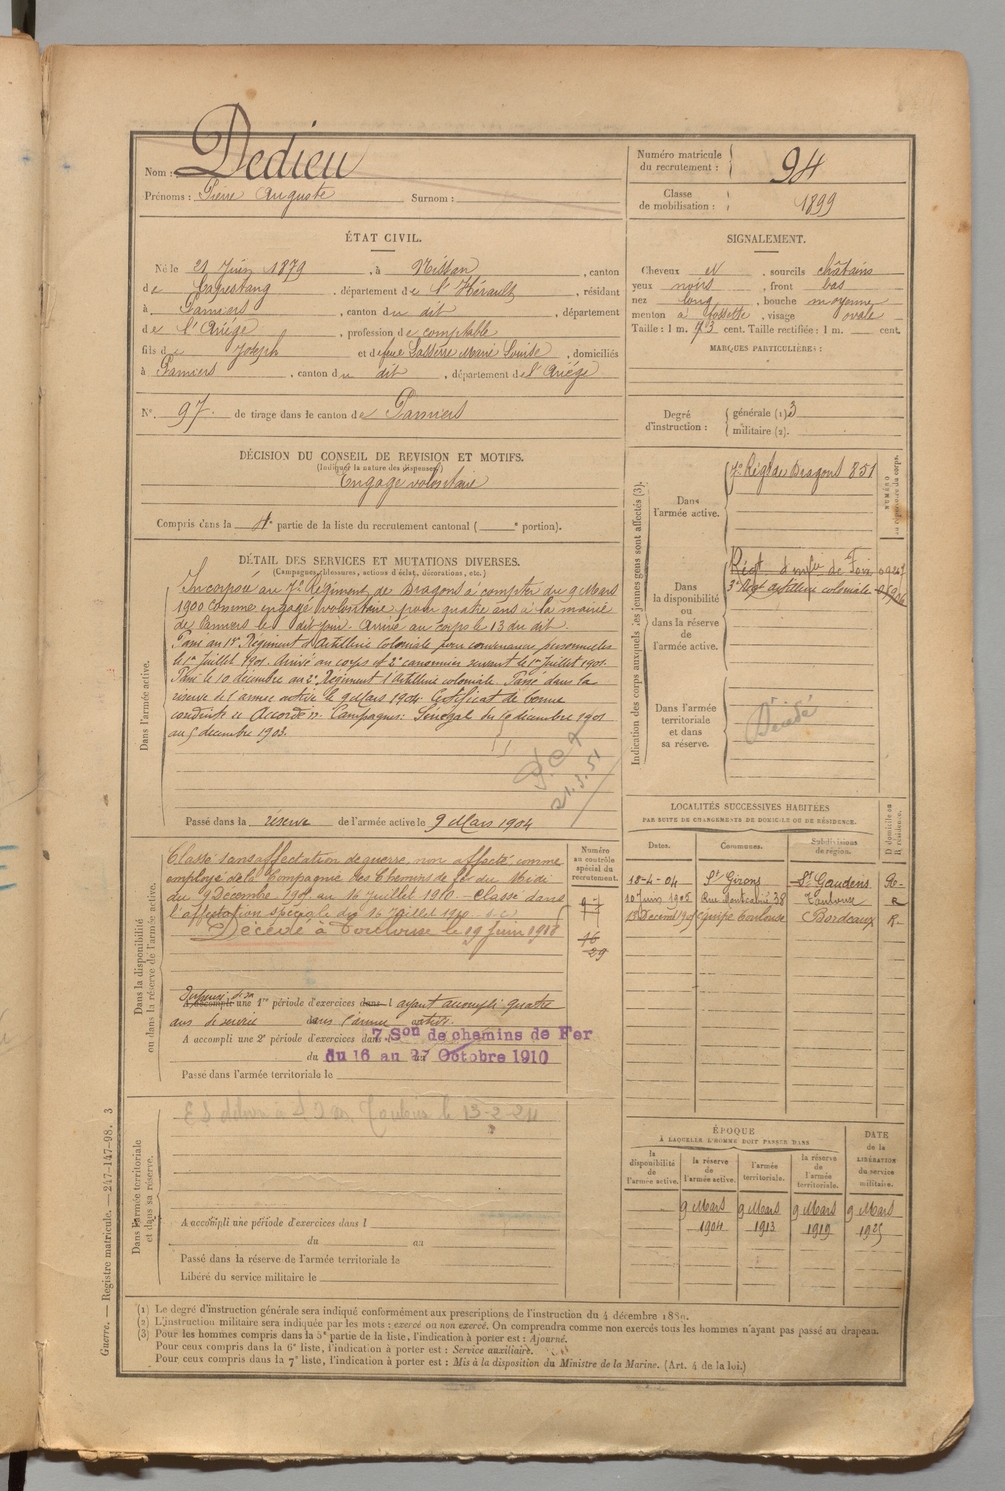 Nom : Dedieu
Prénoms : Pierre Auguste Surnom :
Numéro matricule du recrutement : 94
Classe de mobilisation : 1899
ÉTAT CIVIL.
Né le 21 Juin 1879, à Nissan, canton
de Capestang, département de l'Hérault, résidant
à Pamiers, canton du dit, département
de l'Ariège, profession de comptable
fils de Joseph et de feue Lasserre Marie Louise, domiciliés
à Pamiers, canton du dit, département de l'Ariège
N° 97 de tirage dans le canton de Pamiers
SIGNALEMENT.
Cheveux et, sourcils châtains
yeux noirs, front bas
nez long, bouche moyenne
menton à fossette, visage ovale
Taille : 1 m. 73 cent. Taille rectifiée : 1 m. cent.
MARQUES PARTICULIÈRES :
Degré d'instruction : générale (1) 3
militaire (2).
DÉCISION DU CONSEIL DE REVISION ET MOTIFS.
(Indiquer la nature des dispenses)
Engagé volontaire
Compris dans la 4e partie de la liste du recrutement cantonal ( e portion).
DÉTAIL DES SERVICES ET MUTATIONS DIVERSES.
(Campagnes, blessures, actions d'éclat, décorations, etc.)
Dans l'armée active.
Incorporé au 7e Régiment de Dragons à compter du 9 Mars
1900 comme engagé volontaire pour quatre ans à la mairie
de Pamiers le dit jour. Arrivé au corps le 13 du dit.
Passé au 1er Régiment d'Artillerie Coloniale pour convenances personnelles
le 1er Juillet 1901. Arrivé au corps et 2e canonnier servant le 1er Juillet 1901.
Passé le 10 décembre au 2e Régiment d'Artillerie coloniale. Passé dans la
réserve de l'armée active le 9 Mars 1904. Certificat de bonne
conduite Accordé. Campagnes : Sénégal du 10 décembre 1901
au 5 décembre 1903.
21.3.51
Passé dans la réserve de l'armée active le 9 Mars 1904
Indication des corps auxquels les jeunes gens sont affectés (3).
NUMÉRO au répertoire du corps.
Dans l'armée active.
7e Régt de Dragons 851
Dans la disponibilité ou dans la réserve de l'armée active.
Régt d'infie de Foix 09247
3e Régt artillerie coloniale
Dans l'armée territoriale et dans sa réserve.
Décédé
LOCALITÉS SUCCESSIVES HABITÉES
PAR SUITE DE CHANGEMENTS DE DOMICILE OU DE RÉSIDENCE.
Dates. Communes. Subdivisions de région. D domicile ou R résidence.
18-4-04 St Girons St Gaudens R-
10 Juin 1905 Rue Montcabrié 38 Toulouse R
Toulouse Bordeaux R-
Dans la disponibilité ou dans la réserve de l'armée active.
Numéro au contrôle spécial du recrutement.
Classé sans affectation de guerre, non affecté comme
employé de la Compagnie des Chemins de fer du Midi
du 9 Décembre 1909 au 16 Juillet 1910. - Classé dans
l'affectation spéciale du 16 Juillet 1910.
Décédé à Toulouse le 19 Juin 1918
16
29
Dispensé de sa
A accompli une 1re période d'exercices dans l ayant accompli quatre
ans de service dans l'armée active.
A accompli une 2e période d'exercices dans l
7 Son de chemins de Fer
du 16 au 27 Octobre 1910
Passé dans l'armée territoriale le
Dans l'armée territoriale et dans sa réserve.
A accompli une période d'exercices dans l
du au
Passé dans la réserve de l'armée territoriale le
Libéré du service militaire le
ÉPOQUE
À LAQUELLE L'HOMME DOIT PASSER DANS
DATE de la LIBÉRATION du service militaire.
la disponibilité de l'armée active. la réserve de l'armée active. l'armée territoriale. la réserve de l'armée territoriale.
9 Mars 9 Mars 9 Mars 9 Mars
1904 1913 1919 1925
(1) Le degré d'instruction générale sera indiqué conformément aux prescriptions de l'instruction du 4 décembre 1889.
(2) L'instruction militaire sera indiquée par les mots : exercé ou non exercé. On comprendra comme non exercés tous les hommes n'ayant pas passé au drapeau.
(3) Pour les hommes compris dans la 5e partie de la liste, l'indication à porter est : Ajourné.
Pour ceux compris dans la 6e liste, l'indication à porter est : Service auxiliaire.
Pour ceux compris dans la 7e liste, l'indication à porter est : Mis à la disposition du Ministre de la Marine. (Art. 4 de la loi.)
Guerre. — Registre matricule. — 247-147-98. 3